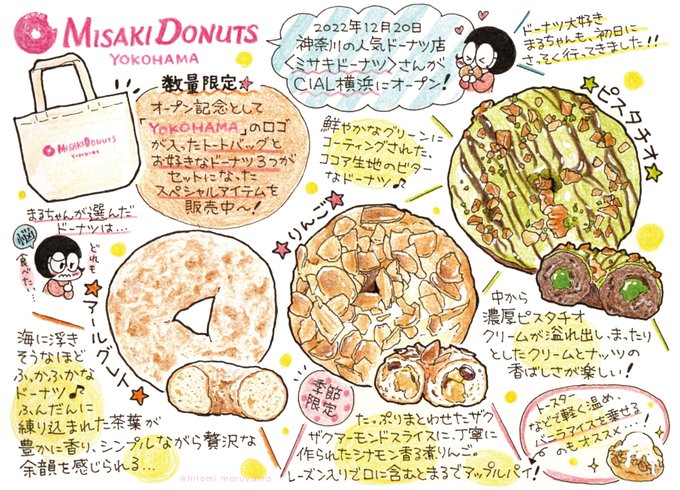 MISAKI DONUTS
YOKOHAMA
2022年12月20日
神奈川の人気ドーナツ店
〈ミサキドーナツ〉さんが
CIAL横浜にオープン!
ドーナツ大好き
まるちゃんも、初日に
さっそく行ってきました!!
MISAKI DONUTS
YOKOHAMA
数量限定
オープン記念として
「YOKOHAMA」のロゴ
が入ったトートバッグと
お好きなドーナツ3つが
セットになった
スペシャルアイテムを
販売中〜!
鮮やかなグリーンに
コーティングされた、
ココア生地のビター
なドーナツ♪
ピスタチオ
中から
濃厚ピスタチオ
クリームが溢れ出し、まったり
としたクリームとナッツの
香ばしさが楽しい!
まるちゃんが選んだ
ドーナツは...
どれも
食べたい...
アールグレイ
海に浮き
そうなほど
ふかふかな
ドーナツ♪
ふんだんに
練り込まれた茶葉が
豊かに香り、シンプルながら贅沢な
余韻を感じられる...
りんご
季節
限定
たっぷりまとわせたザク
ザクアーモンドスライスに、丁寧に
作られたシナモン香る煮りんご。
レーズン入りで口に含むとまるでアップルパイ!
トースター
などで軽く温め、
バニラアイスを乗せる
のもオススメ...!
@hitomi maruyama